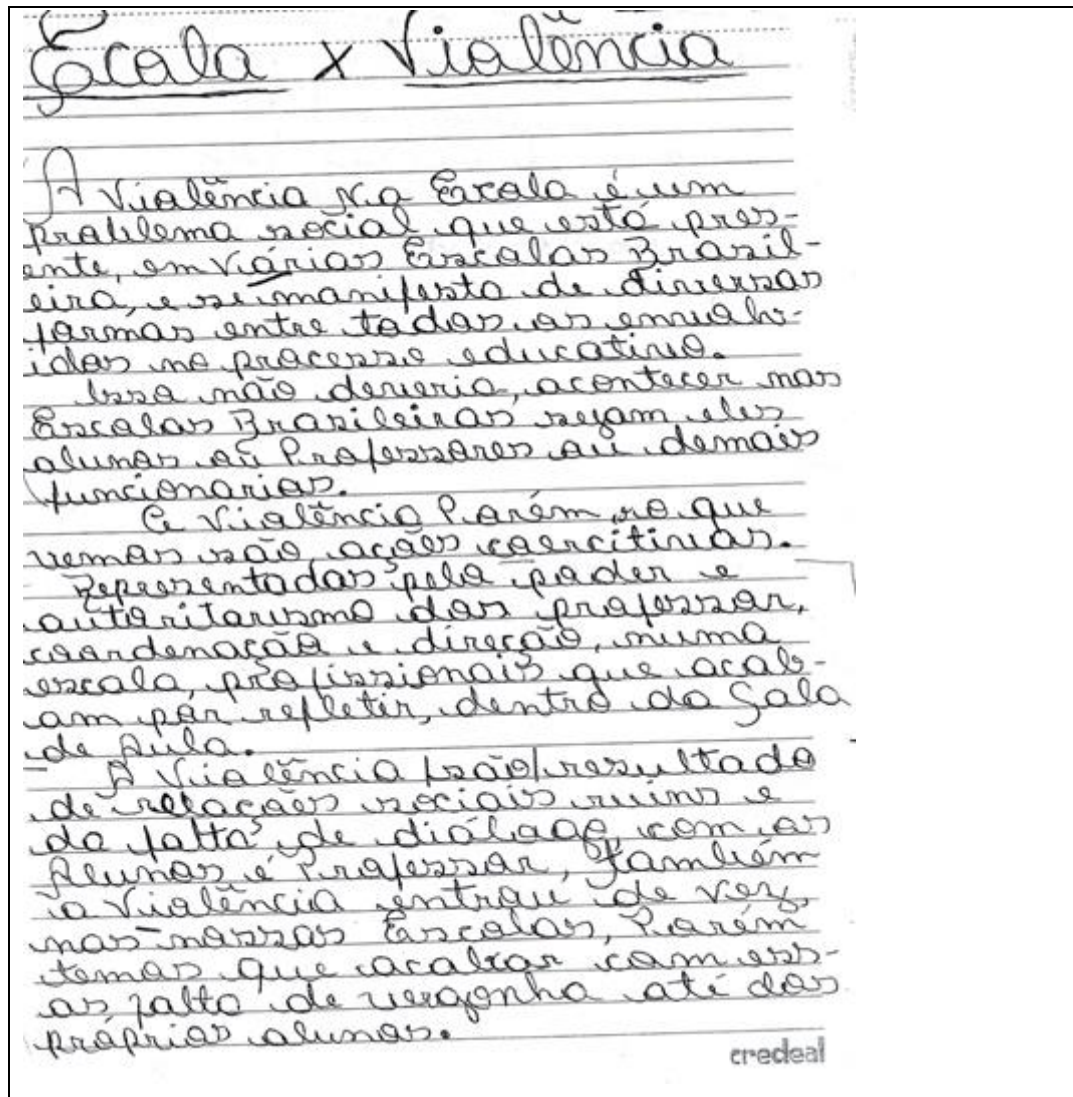 Escola x Violência
A Violência Na Escola é um
problema social que está pres-
ente, em várias Escolas Brasil-
eira, e se manifesta de diversas
formas entre todos os envolv-
idos no processo educativo.
Isso não deveria, acontecer nas
Escolas Brasileiras sejam eles
alunos ou Professores ou demais
funcionarios.
A violência Porém, so que
vemos são ações coercitivas.
Representadas pelo poder e
autoritarismo dos professor,
coordenação e direção, numa
escola, profissionais que acab-
am por refletir, dentro da Sala
de Aula.
A Violência são resultado
de relações sociais ruins e
da falta de diálogo, com os
Alunos e Professor, também
a Violência entrou de vez,
nas nossas Escolas, Porém
temos que acabar com ess-
as falta de vergonha até dos
próprios alunos.
credeal